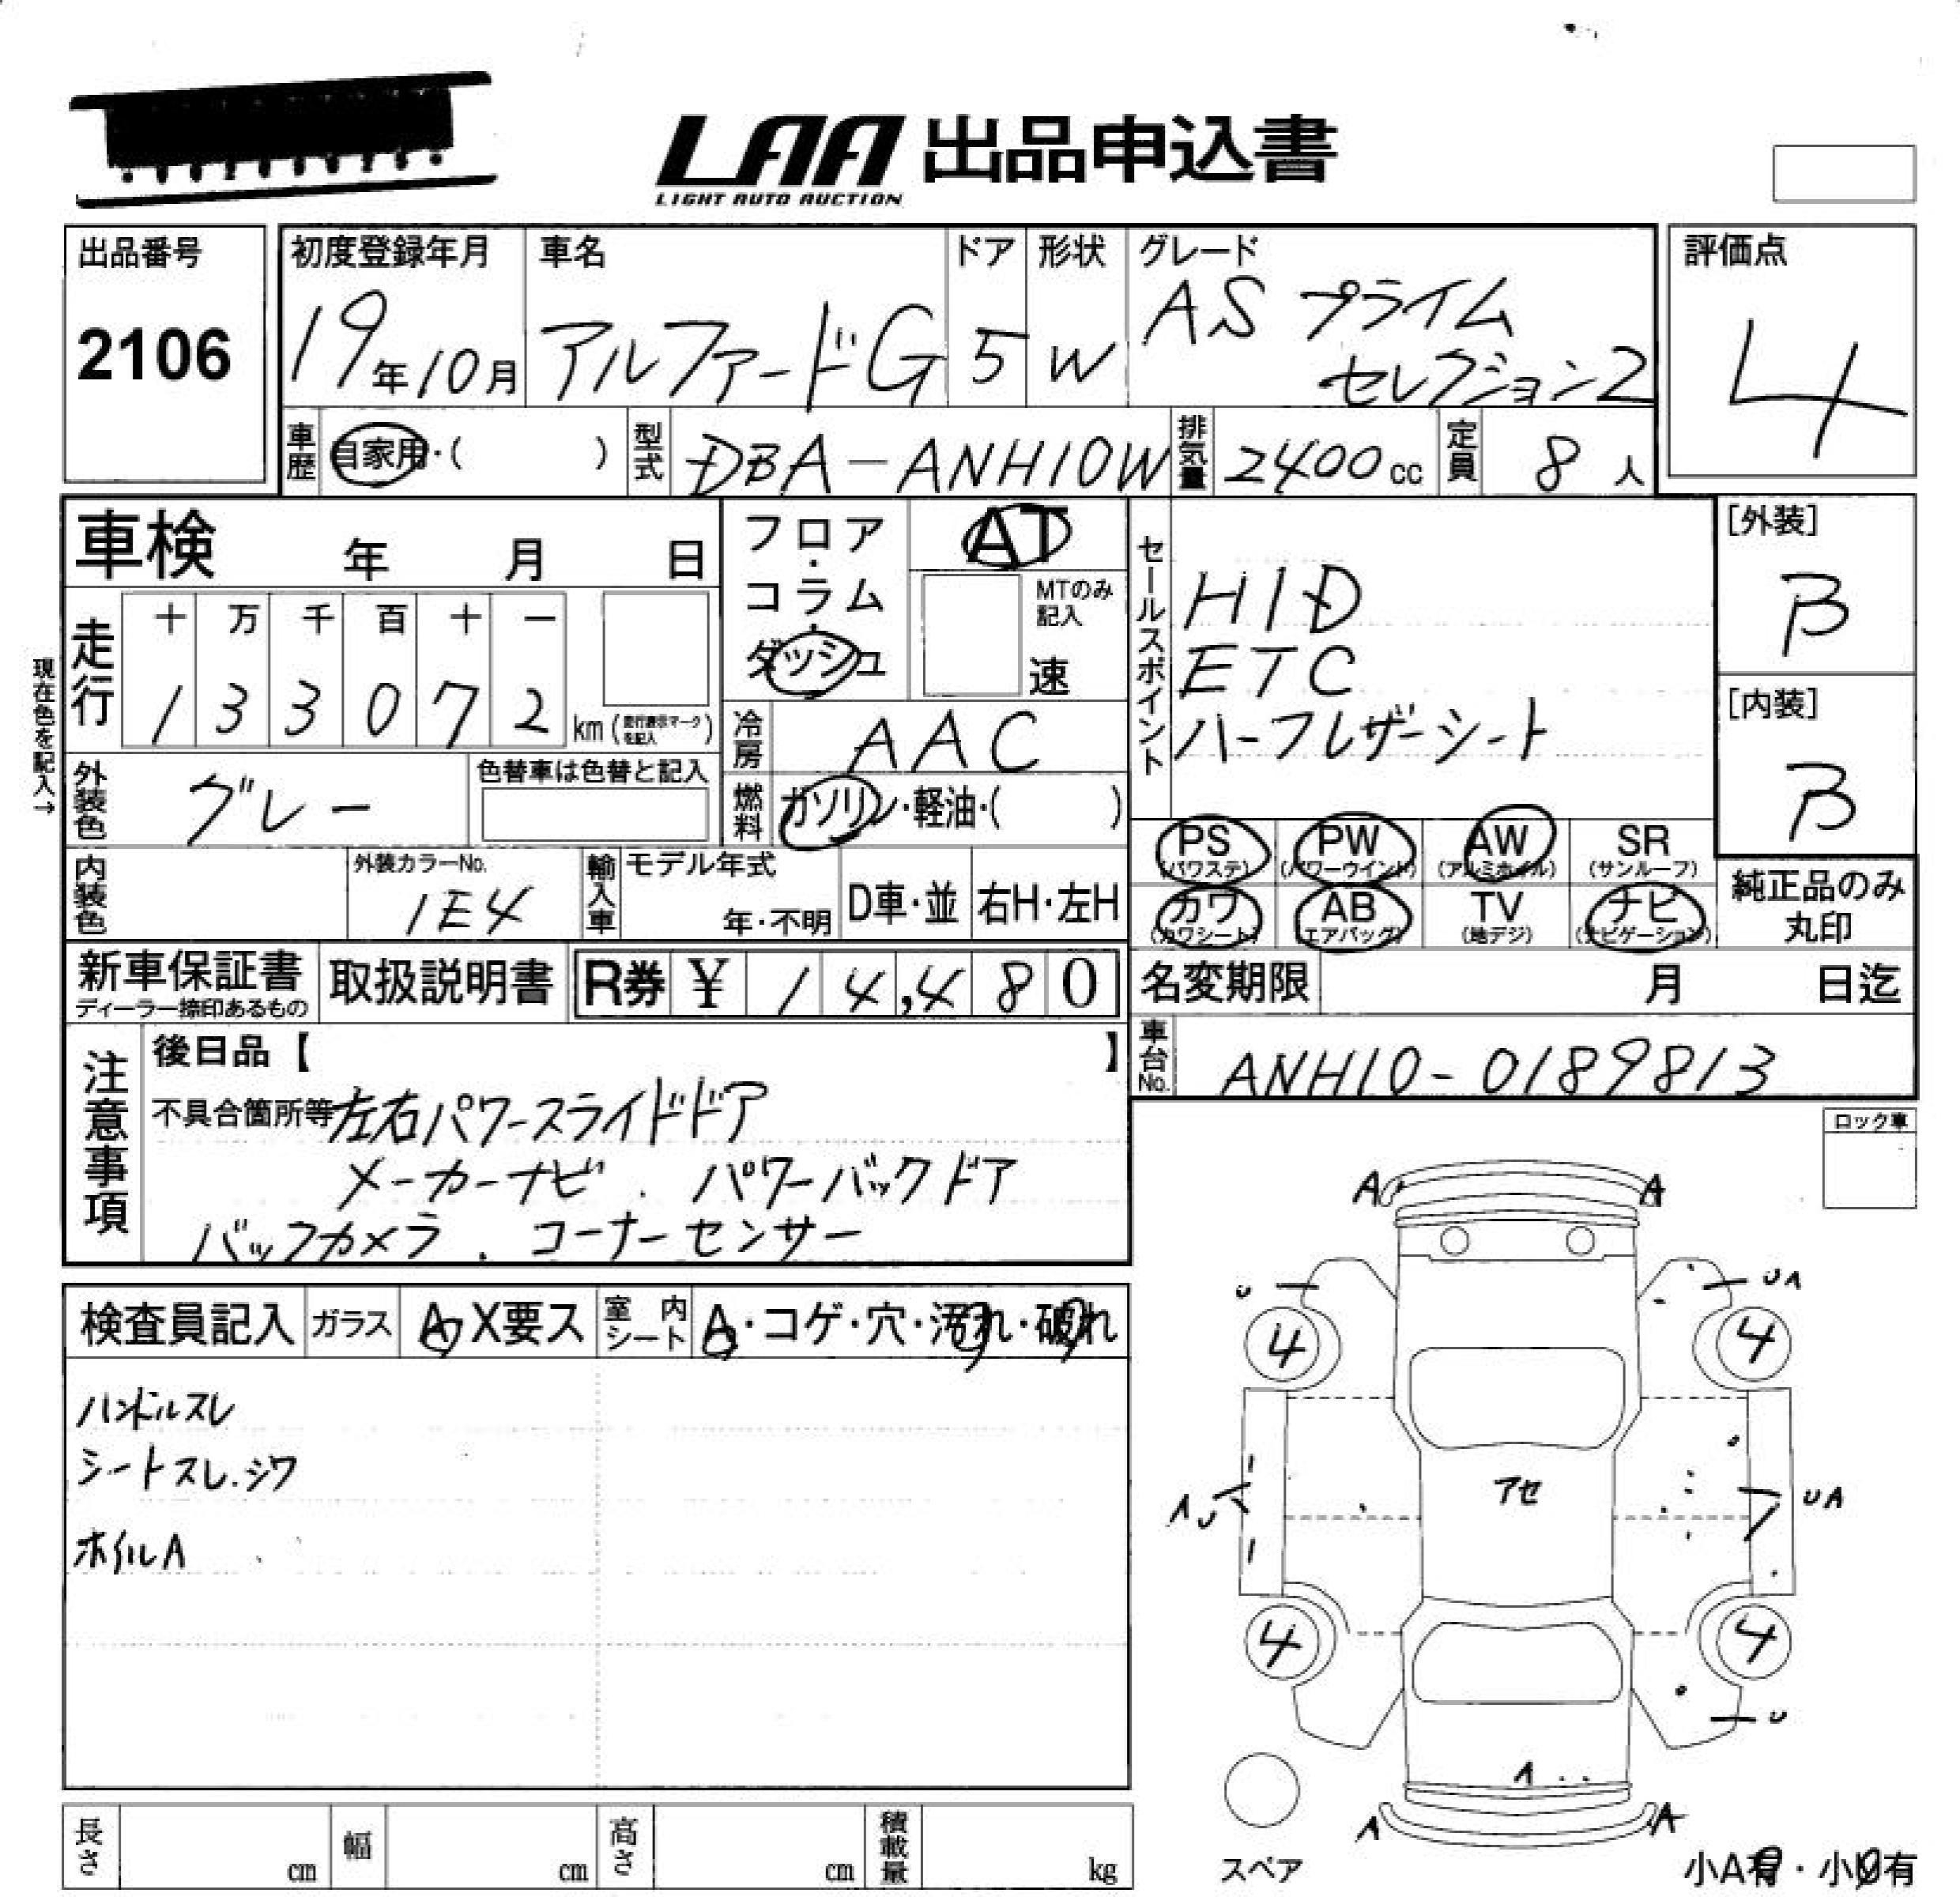 LAA 出品申込書
LIGHT AUTO AUCTION
出品番号
2106
初度登録年月
19年10月
車名
アルファードG
ドア
5
形状
W
グレード
AS プライム
セレクション2
評価点
4
車歴
自家用・(　　)
型式
DBA-ANH10W
排気量
2400cc
定員
8人
車検　年　月　日
フロア・コラム・ダッシュ
AT
MTのみ記入
速
セールスポイント
HID
ETC
ハーフレザーシート
[外装]
B
[内装]
B
現在色を記入→
走行
十 万 千 百 十 一
1 3 3 0 7 2
km (走行表示マークを記入)
冷房
AAC
外装色
グレー
色替車は色替と記入
燃料
ガソリン・軽油・(　　)
PS (パワステ)
PW (パワーウインド)
AW (アルミホイル)
SR (サンルーフ)
カワ (カワシート)
AB (エアバッグ)
TV (地デジ)
ナビ (ナビゲーション)
純正品のみ
丸印
内装色
外装カラーNo.
1E4
輸入車
モデル年式
年・不明
D車・並
右H・左H
新車保証書
ディーラー捺印あるもの
取扱説明書
R券 ¥ 14,480
名変期限　月　日迄
車台No.
ANH10-0189813
注意事項
後日品【　　】
不具合箇所等
左右パワースライドドア
メーカーナビ . パワーバックドア
バックカメラ . コーナーセンサー
ロック車
検査員記入
ガラス
A・X要ス
室内シート
A・コゲ・穴・汚れ・破れ
ハンドルスレ
シートスレ.シワ
ホイルA
A A
U UA
4 4
アセ
AU UA
4 4
U
A
A A
スペア
小A有・小U有
長さ cm
幅 cm
高さ cm
積載量 kg